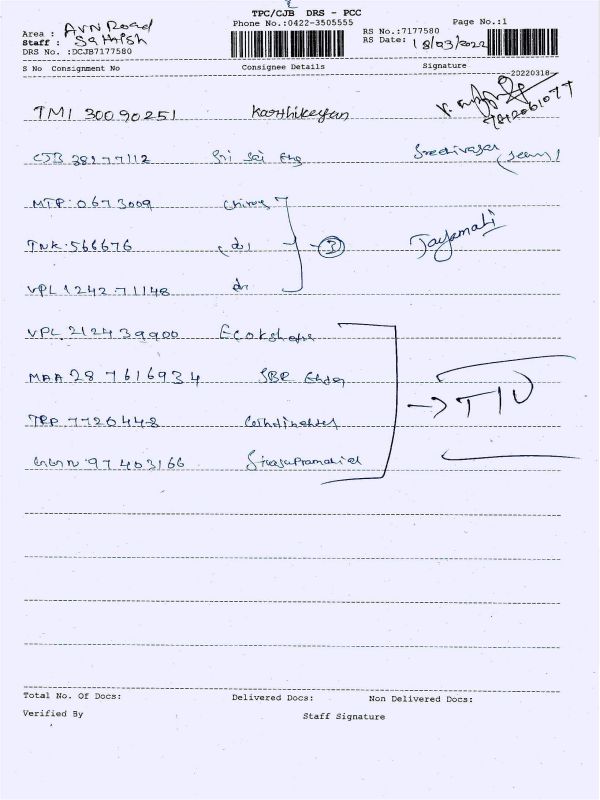 TPC/CJB DRS - PCC
Phone No.:0422-3505555
Page No.:1
Area : AVN Road
Staff : Sathish
DRS No. :DCJB7177580
RS No.:7177580
RS Date: 18/03/2022
S No Consignment No Consignee Details Signature
20220318
TMI 30090251 Karthikeyan
CJB 38177112 Sri Sai Eng
MTP: 0673009
TNK. 566676 (do) 3 Jayamani
VPL 1242 71148 do
VPL. 2124 39900
MAA 28 7616934 SBR
TRP 7720448
97403166
→ TIU
Total No. Of Docs: Delivered Docs: Non Delivered Docs:
Verified By Staff Signature